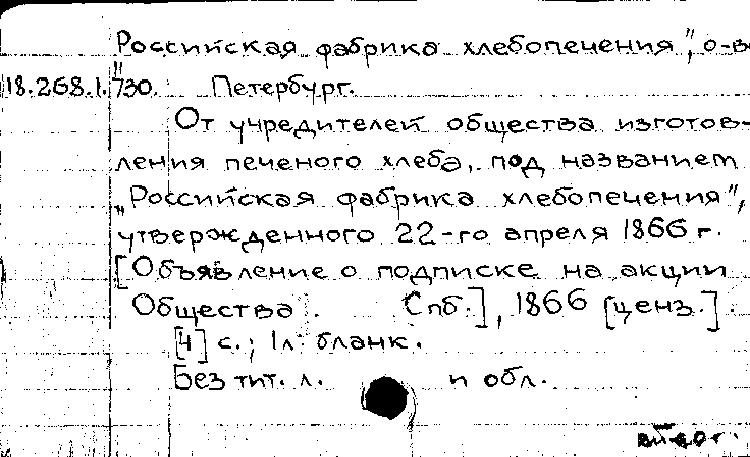 Российская фабрика хлебопечения", о-во
18.268.1.730. Петербург.
От учредителей общества изготов-
ления печеного хлеба, под названием
„Российская фабрика хлебопечения",
утвержденного 22-го апреля 1866 г.
[Объявление о подписке на акции
Общества. Спб.], 1866 [ценз.].
[4] с.; 1 л. бланк.
Без тит. л. и обл.